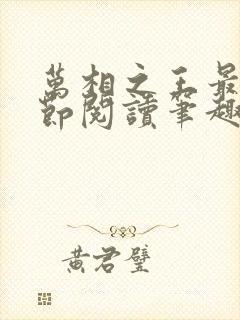 萬相之王最
節閱讀筆趣
黃君璧